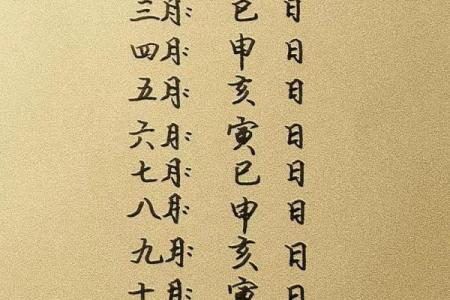 三月： 巳 日
四月： 申 日
五月： 亥 日
六月： 寅 日
七月： 巳 日
八月： 申 日
九月： 亥 日
十月： 寅 日